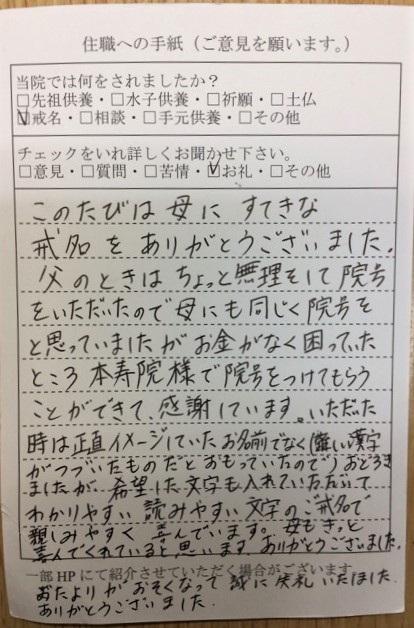 住職への手紙（ご意見を願います。）
当院では何をされましたか？
□先祖供養・□水子供養・□祈願・□土仏
☑戒名・□相談・□手元供養・□その他
チェックをいれ詳しくお聞かせ下さい。
□意見・□質問・□苦情・☑お礼・□その他
このたびは 母に すてきな
戒名を ありがとうございました。
父のときは ちょっと無理をして 院号
をいただいたので 母にも 同じく 院号を
と思っていましたが お金がなく 困っていた
ところ 本寿院様で 院号をつけてもらう
ことができて、感謝しています。いただいた
時は正直イメージしていた お名前でなく(難しい漢字
がつづいたものだと おもっていたので) おどろき
ましたが、希望した文字も入れていただいて
わかりやすい 読みやすい 文字の ご戒名で
親しみやすく 喜んでいます。 母もきっと
喜んでくれていると思います。ありがとうございました。
一部HPにて紹介させていただく場合がございます
おたよりが おそくなって 誠に 失礼 いたしました
ありがとうございました.